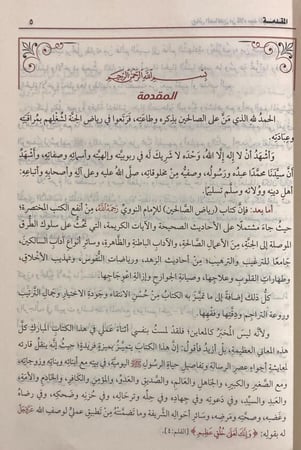 المقدمة ٥
بسم الله الرحمن الرحيم
المقدمة
الحمدُ لله الذي مَنَّ على الصالحين بذِكره وطاعتِه، فرَتَعوا في رياض الجنة لشُغْلِهم بمُراقبتِه
وعِبادتِه.
وأشْهَدُ أنْ لا إلهَ إلَّا اللهُ، وَحْدَه لا شريكَ له في ربوبيَّتِه وإلهيَّتِه وأسمائِه وصِفاتِه، وأشْهَدُ
أنَّ سيِّدَنا محمَّدًا عبدُه ورَسولُه، وصفيُّه مِن مخلوقاتِه، صلَّى اللهُ عليه وعلى آلِه وأصحابِه وأتباعِه؛
أهلِ دينِه ووِلايتِه وسلَّم تسليمًا.
أما بعد: فإنَّ كتابَ (رياضِ الصَّالحين) للإمام النوويِّ رَحِمَهُ اللهُ، مِن أنفَعِ الكتبِ المختصرة؛
حيثُ جاءَ مشتملًا على الأحاديثِ الصحيحة والآياتِ الكريمة، التي تَحُثُّ على سلوكِ الطُّرقِ
الموصلةِ إلى الجنَّة، مِنَ الأعمالِ الصالحة، والآدابِ الباطنةِ والظاهرة، وسائرِ أنواعِ آدابِ السالكين،
جامعًا للترغيبِ والترهيب؛ مِن أحاديثِ الزهد، ورياضاتِ النُّفوس، وتهذيبِ الأخلاق،
وطهاراتِ القلوبِ وعلاجِها، وصيانةِ الجوارحِ وإزالةِ اعْوِجاجِها.
كلُّ ذلك إضافةً إلى ما تميَّزَ به الكتابُ مِنْ حُسنِ الانتقاءِ، وجَودةِ الاختيارِ، وجمالِ الترتيبِ
وروعةِ التراجم ودِقَّتِها وفقهِها.
ولأنَّه ليس المُخبَرُ كالمعاين؛ فلقد لمستُ بنفسي أثناءَ عملي في هذا الكتابِ المباركِ كلَّ
هذه المعاني العظيمة، بل أزيدُ فأقولُ: إنَّ هذا الكتابَ يتميَّزُ بميزةٍ فريدةٍ؛ حيثُ إنَّه ينقُلُ قارئَه
لمعايشةِ أجواءِ عصرِ الرسالةِ وتفاصيلِ حياةِ الرسولِ ﷺ اليوميَّة، في بيتِه مع أبنائِه وبناتِه وزوجاتِه،
ومع الصَّغيرِ والكبيرِ، والجاهلِ والعالمِ، والصديقِ والعدوِّ، والمؤمنِ والكافرِ، والخادمِ والأمَةِ،
والعبدِ والسيِّدِ، وفي دعوتِه وفي جهادِه وفي حِلِّه وتَرحالِه، وفي حُزنِه وضحكِه، وفي رضاهُ
وغضبِه، وصحَّتِه ومرضِه، وسائرِ أحوالِه الشَّريفة وما تضمَّنتْهُ مِنْ تطبيقٍ عمليٍّ لوصفِ اللهِ عَزَّوَجَلَّ
له بقولِه: ﴿وَإِنَّكَ لَعَلَىٰ خُلُقٍ عَظِيمٍ﴾ [القلم: ٤].